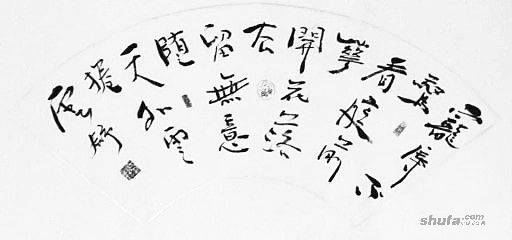 寵辱不
驚
看庭前
華
開花落
去
留無意
隨
天外雲
捲
雲舒
shufa.com